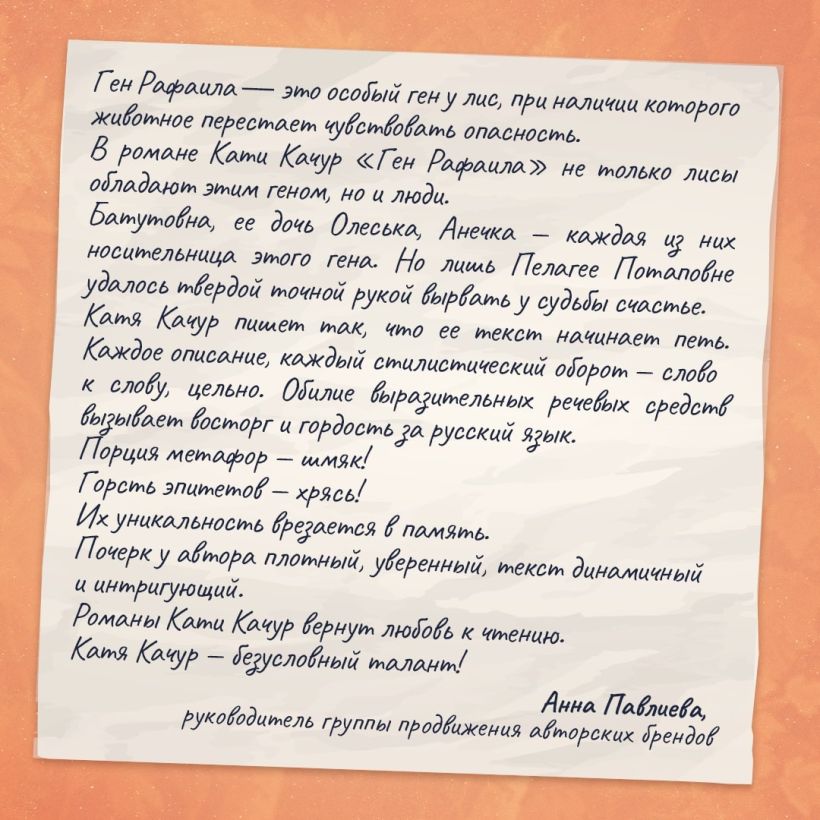 Ген Рафаила — это особый ген у лис, при наличии которого
животное перестает чувствовать опасность.
В романе Кати Качур «Ген Рафаила» не только лисы
обладают этим геном, но и люди.
Батутовна, ее дочь Олеська, Анечка — каждая из них
носительница этого гена. Но лишь Пелагее Потаповне
удалось твердой точной рукой вырвать у судьбы счастье.
Катя Качур пишет так, что ее текст начинает петь.
Каждое описание, каждый стилистический оборот — слово
к слову, цельно. Обилие выразительных речевых средств
вызывает восторг и гордость за русский язык.
Порция метафор — шмяк!
Горсть эпитетов — хрясь!
Их уникальность врезается в память.
Почерк у автора плотный, уверенный, текст динамичный
и интригующий.
Романы Кати Качур вернут любовь к чтению.
Катя Качур — безусловный талант!
Анна Павлиева,
руководитель группы продвижения авторских брендов